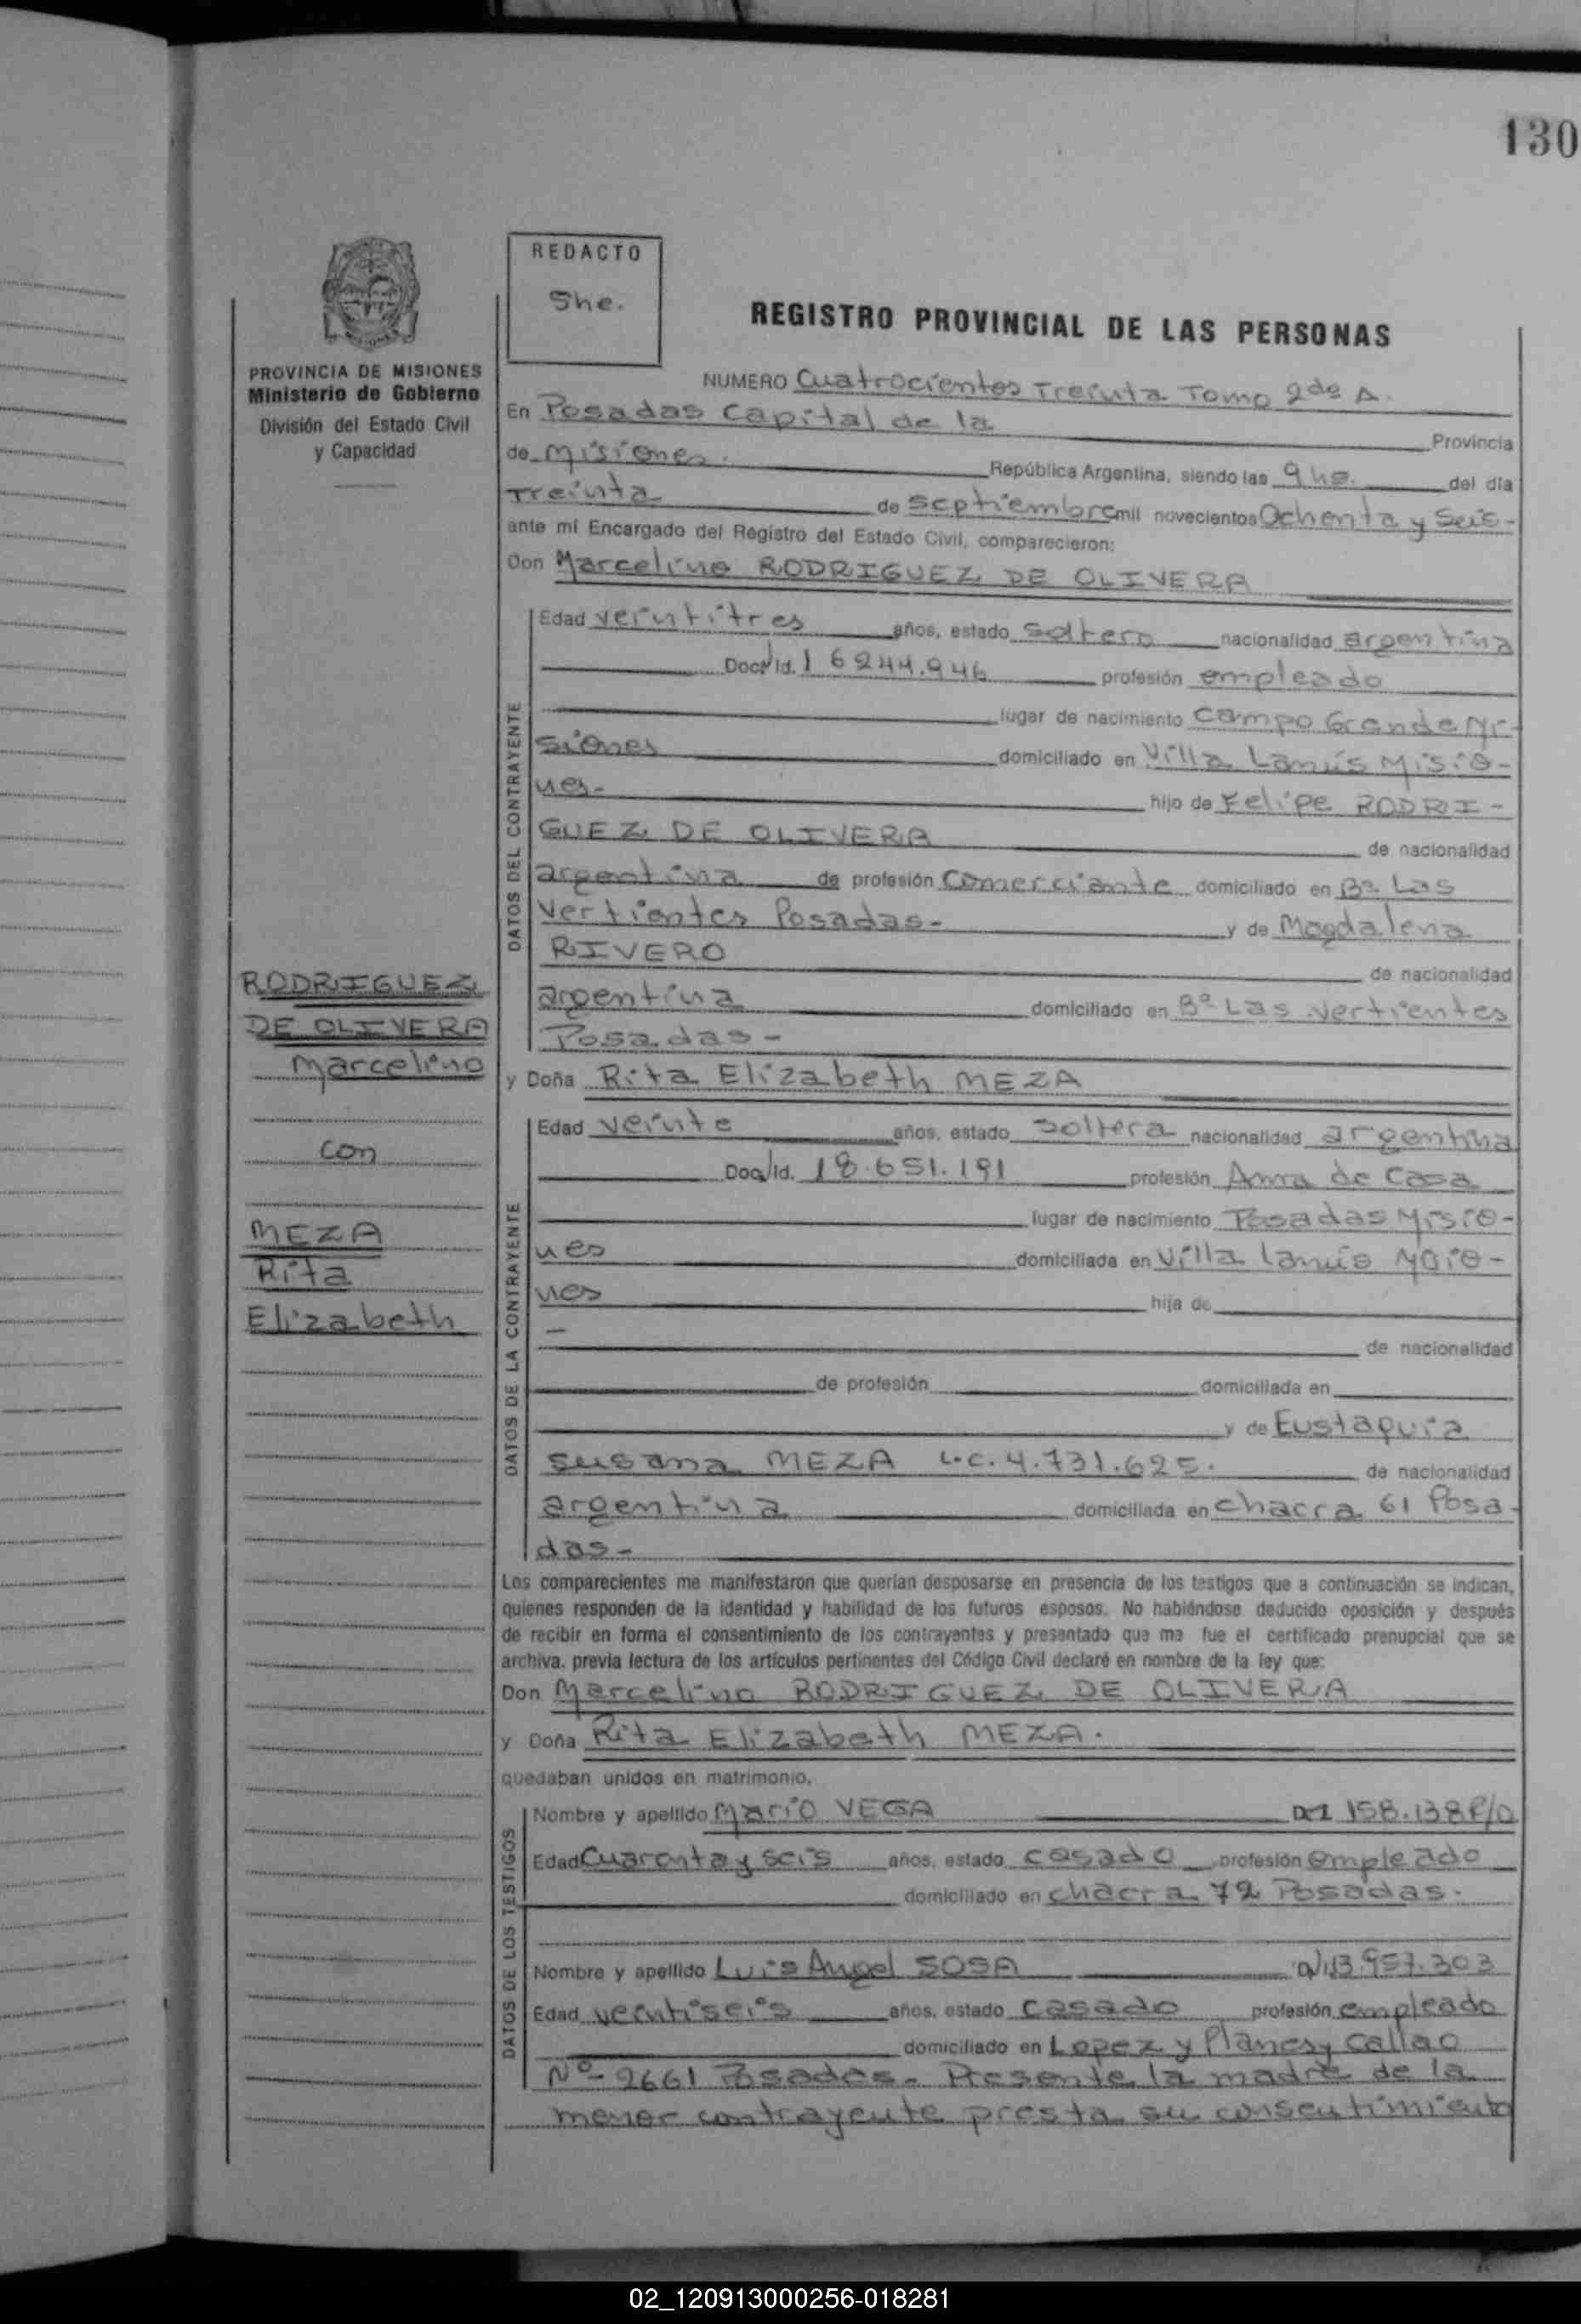 130
REDACTO
She.
PROVINCIA DE MISIONES
Ministerio de Gobierno
División del Estado Civil
y Capacidad
REGISTRO PROVINCIAL DE LAS PERSONAS
NUMERO Cuatrocientos Treinta Tomo 2do A.
En Posadas Capital de la Provincia
de Misiones. República Argentina, siendo las 9 hs. del día
Treinta de Septiembre mil novecientos Ochenta y Seis-
ante mí Encargado del Registro del Estado Civil, comparecieron:
Don Marcelino RODRIGUEZ DE OLIVERA
DATOS DEL CONTRAYENTE
Edad veintitres años, estado Soltero nacionalidad argentina
Doc. Id. 16244.946 profesión empleado
lugar de nacimiento Campo Grande Mi-
siones domiciliado en Villa Lanús Misio-
nes- hijo de Felipe RODRI-
GUEZ DE OLIVERA de nacionalidad
argentina de profesión Comerciante domiciliado en Bº Las
Vertientes Posadas- y de Magdalena
RIVERO de nacionalidad
argentina domiciliado en Bº Las Vertientes
Posadas-
RODRIGUEZ
DE OLIVERA
Marcelino
con
MEZA
Rita
Elizabeth
y Doña Rita Elizabeth MEZA
DATOS DE LA CONTRAYENTE
Edad veinte años, estado Soltera nacionalidad argentina
Doc. Id. 18.651.191 profesión Ama de Casa
lugar de nacimiento Posadas Misio-
nes domiciliada en Villa Lanús
nes hija de
de nacionalidad
de profesión domiciliada en
y de Eustaquia
Susana MEZA L.C. 4.731.625. de nacionalidad
argentina domiciliada en chacra 61 Posa-
das-
Los comparecientes me manifestaron que querían desposarse en presencia de los testigos que a continuación se indican,
quienes responden de la identidad y habilidad de los futuros esposos. No habiéndose deducido oposición y después
de recibir en forma el consentimiento de los contrayentes y presentado que me fue el certificado prenupcial que se
archiva. previa lectura de los artículos pertinentes del Código Civil declaré en nombre de la ley que:
Don Marcelino RODRIGUEZ DE OLIVERA
y Doña Rita Elizabeth MEZA.
quedaban unidos en matrimonio.
DATOS DE LOS TESTIGOS
Nombre y apellido Mario VEGA 158.138
Edad Cuarenta y seis años, estado casado profesión empleado
domiciliado en chacra 72 Posadas.
Nombre y apellido Luis Angel SOSA 13.957.303
Edad veintiseis años, estado casado profesión empleado
domiciliado en Lopez y Planes y Callao
Nº 2661 Posadas- Presente la madre de la
menor contrayente presta su consentimiento
02_120913000256-018281